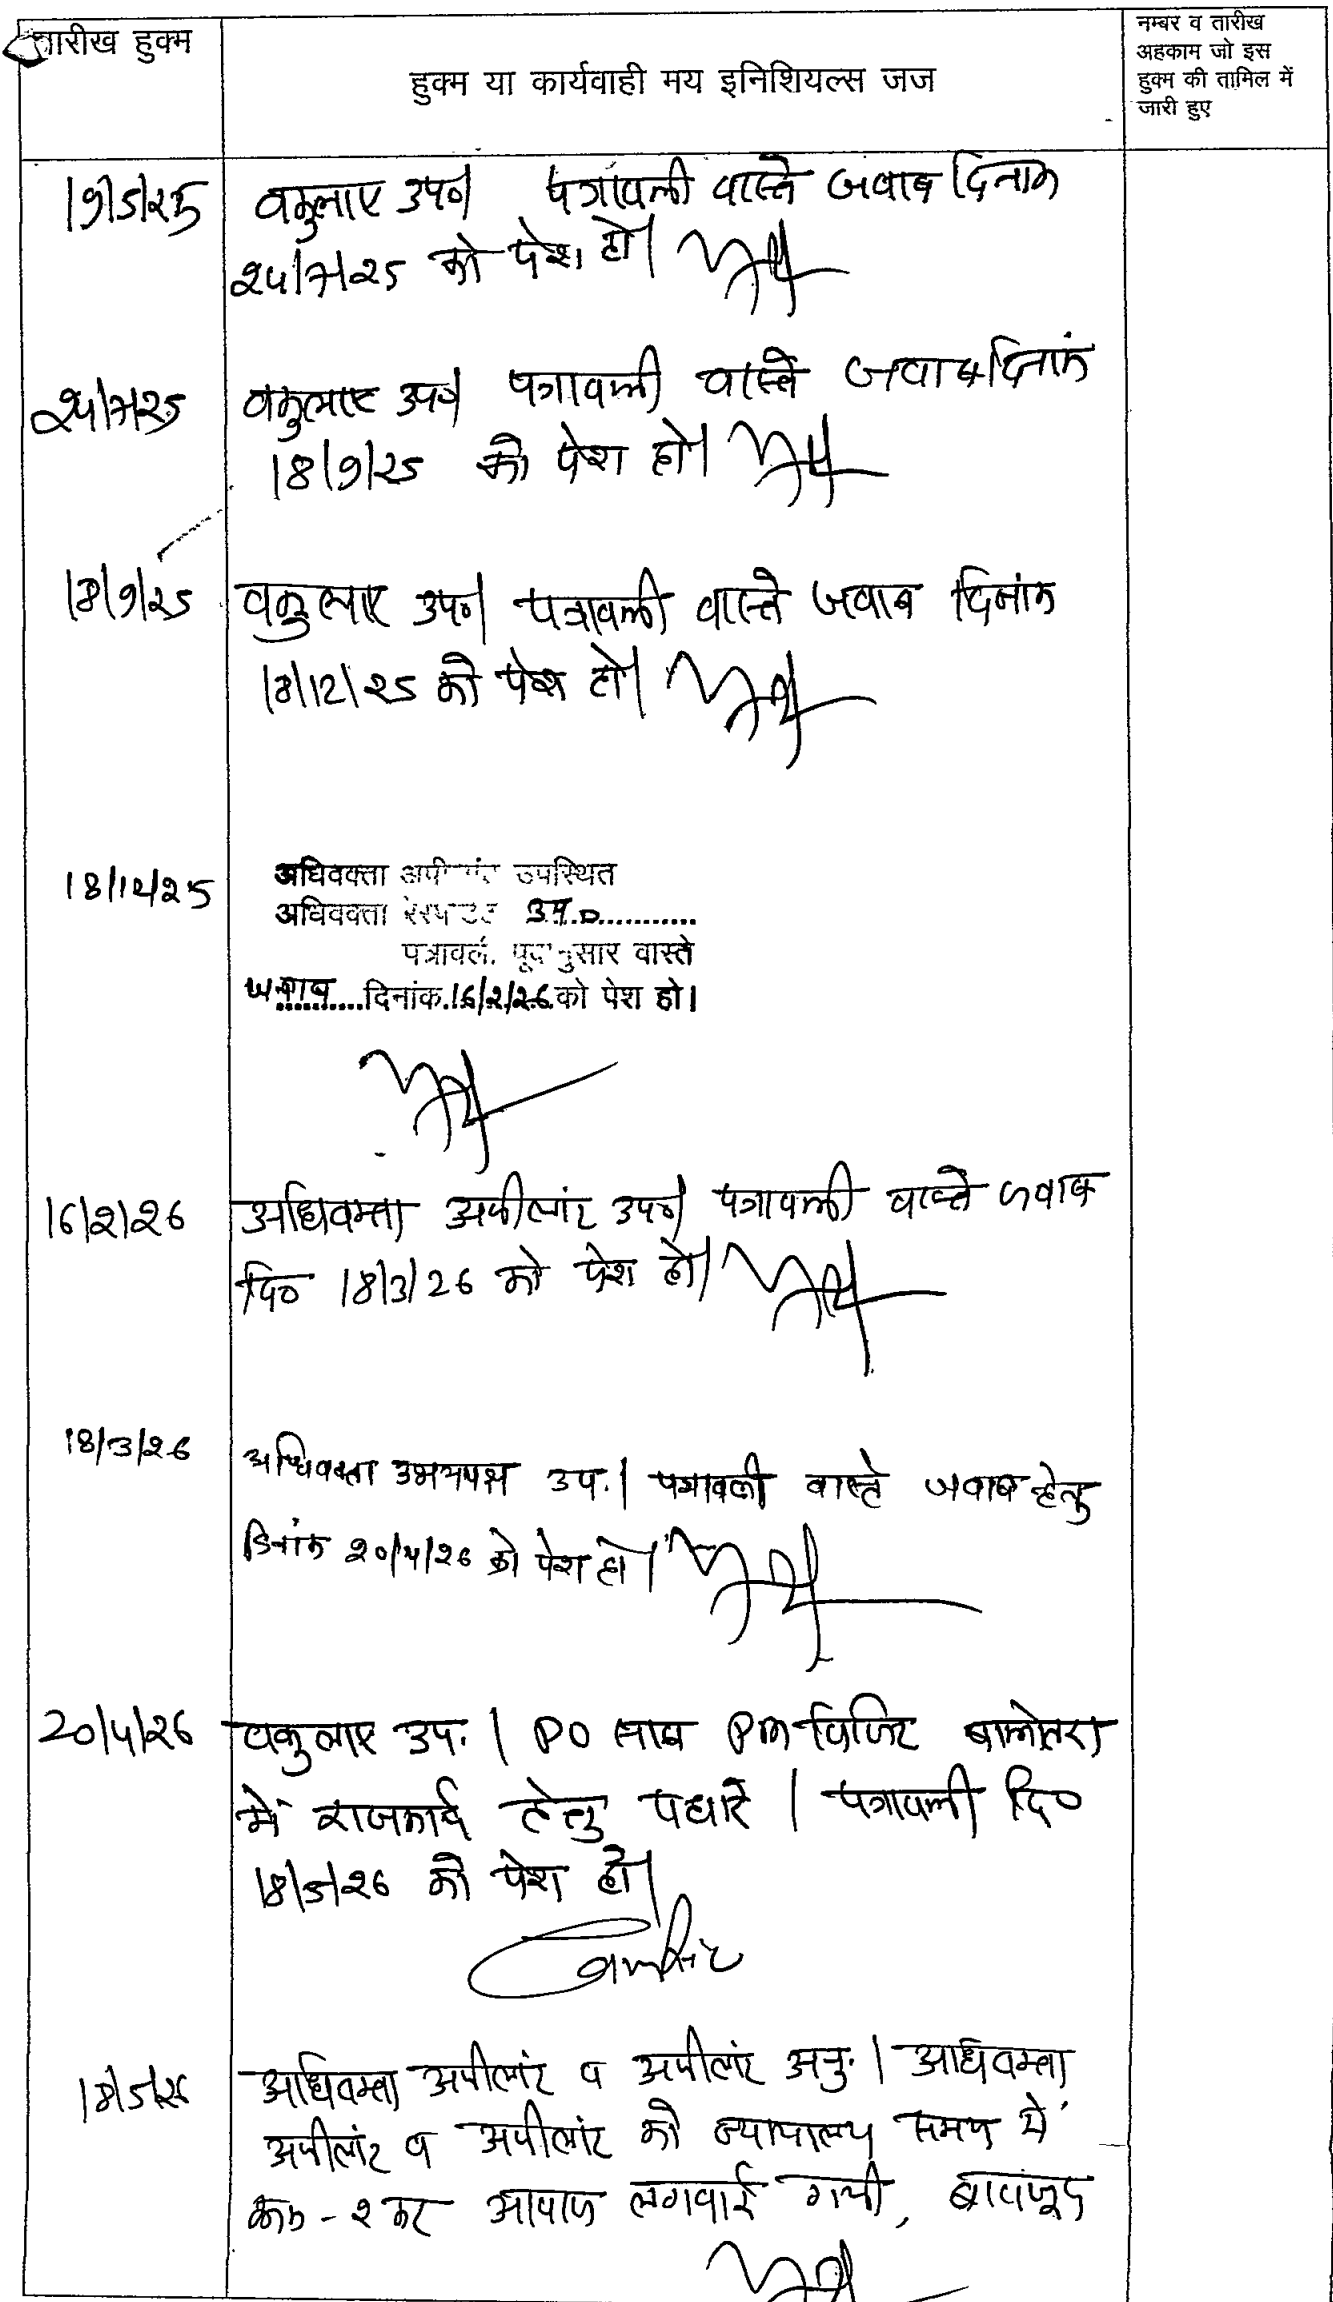 तारीख हुक्म
हुक्म या कार्यवाही मय इनिशियल्स जज
नम्बर व तारीख
अहकाम जो इस
हुक्म की तामिल में
जारी हुए
19/5/25 वकुलाए उप०। पत्रावली वास्ते जवाब दिनांक
24/7/25 को पेश हो।
24/7/25 वकुलाए उप०। पत्रावली वास्ते जवाब दिनांक
18/9/25 को पेश हो।
18/9/25 वकुलाए उप०। पत्रावली वास्ते जवाब दिनांक
18/12/25 को पेश हो।
18/12/25 अधिवक्ता अपीलांट उपस्थित
अधिवक्ता रेस्पोडेंट उप.०...........
पत्रावली पूर्वानुसार वास्ते
जवाब.........दिनांक.16/2/26.को पेश हो।
16/2/26 अधिवक्ता अपीलांट उप०। पत्रावली वास्ते जवाब
दि० 18/3/26 को पेश हो।
18/3/26 अधिवक्ता उभयपक्ष उप.। पत्रावली वास्ते जवाब हेतु
दिनांक 20/4/26 को पेश हो।
20/4/26 वकुलाए उप.। PO साब PM विजिट बालोतरा
में राजकार्य हेतु पधारे। पत्रावली दि०
18/5/26 को पेश हो।
18/5/26 अधिवक्ता अपीलांट व अपीलांट अनु.। अधिवक्ता
अपीलांट व अपीलांट को न्यायालय समय में
आवाज लगवाई गयी, बावजूद